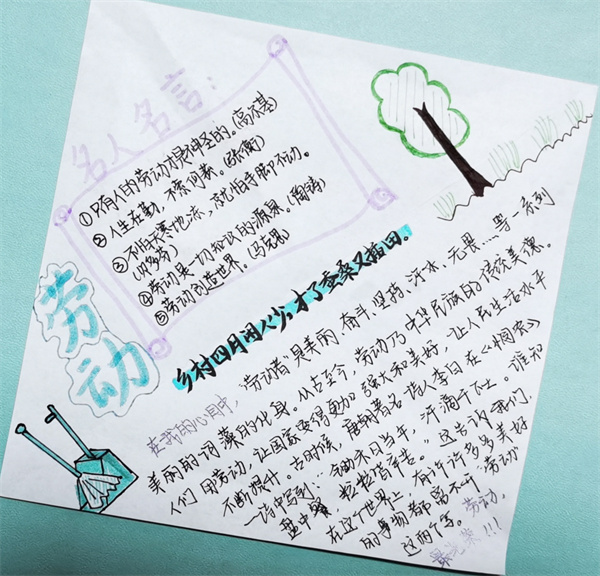 名人名言:
①只有人的劳动才是神圣的。(高尔基)
②人生在勤,不索何获。(张衡)
③不怕天寒地冻,就怕手脚不动。
(贝多芬)
④劳动是一切知识的源泉。(陶铸)
⑤劳动创造世界。(马克思)
劳动
乡村四月闲人少,才了蚕桑又插田。
在我的心目中,"劳动者"是美丽、奋斗、坚持、汗水、无畏……等一系列
美丽的词藻的化身。从古至今,劳动乃中华民族的传统美德。
人们用劳动,让国家变得更加强大和美好,让人民生活水平
不断提升。古时候,唐朝著名诗人李白在《悯农》
一诗中写到:"锄禾日当午,汗滴禾下土。谁知
盘中,粒粒皆辛苦。"这告诉我们,
在这个世界上,有许许多多美好
的事物都离不开"劳动"
这两个字。劳动,
最光荣!!!